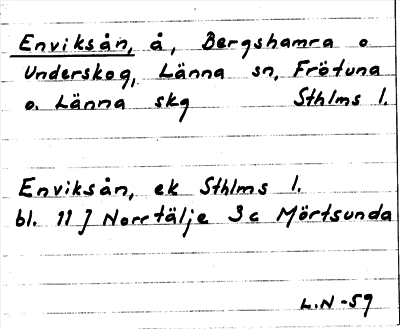 Enviksån, å, Bergshamra o
Underskog, Länna sn, Frötuna
o. Länna skg Sthlms l.
Enviksån, ek Sthlms l.
bl. 11 J Norrtälje 3c Mörtsunda
L.N -59